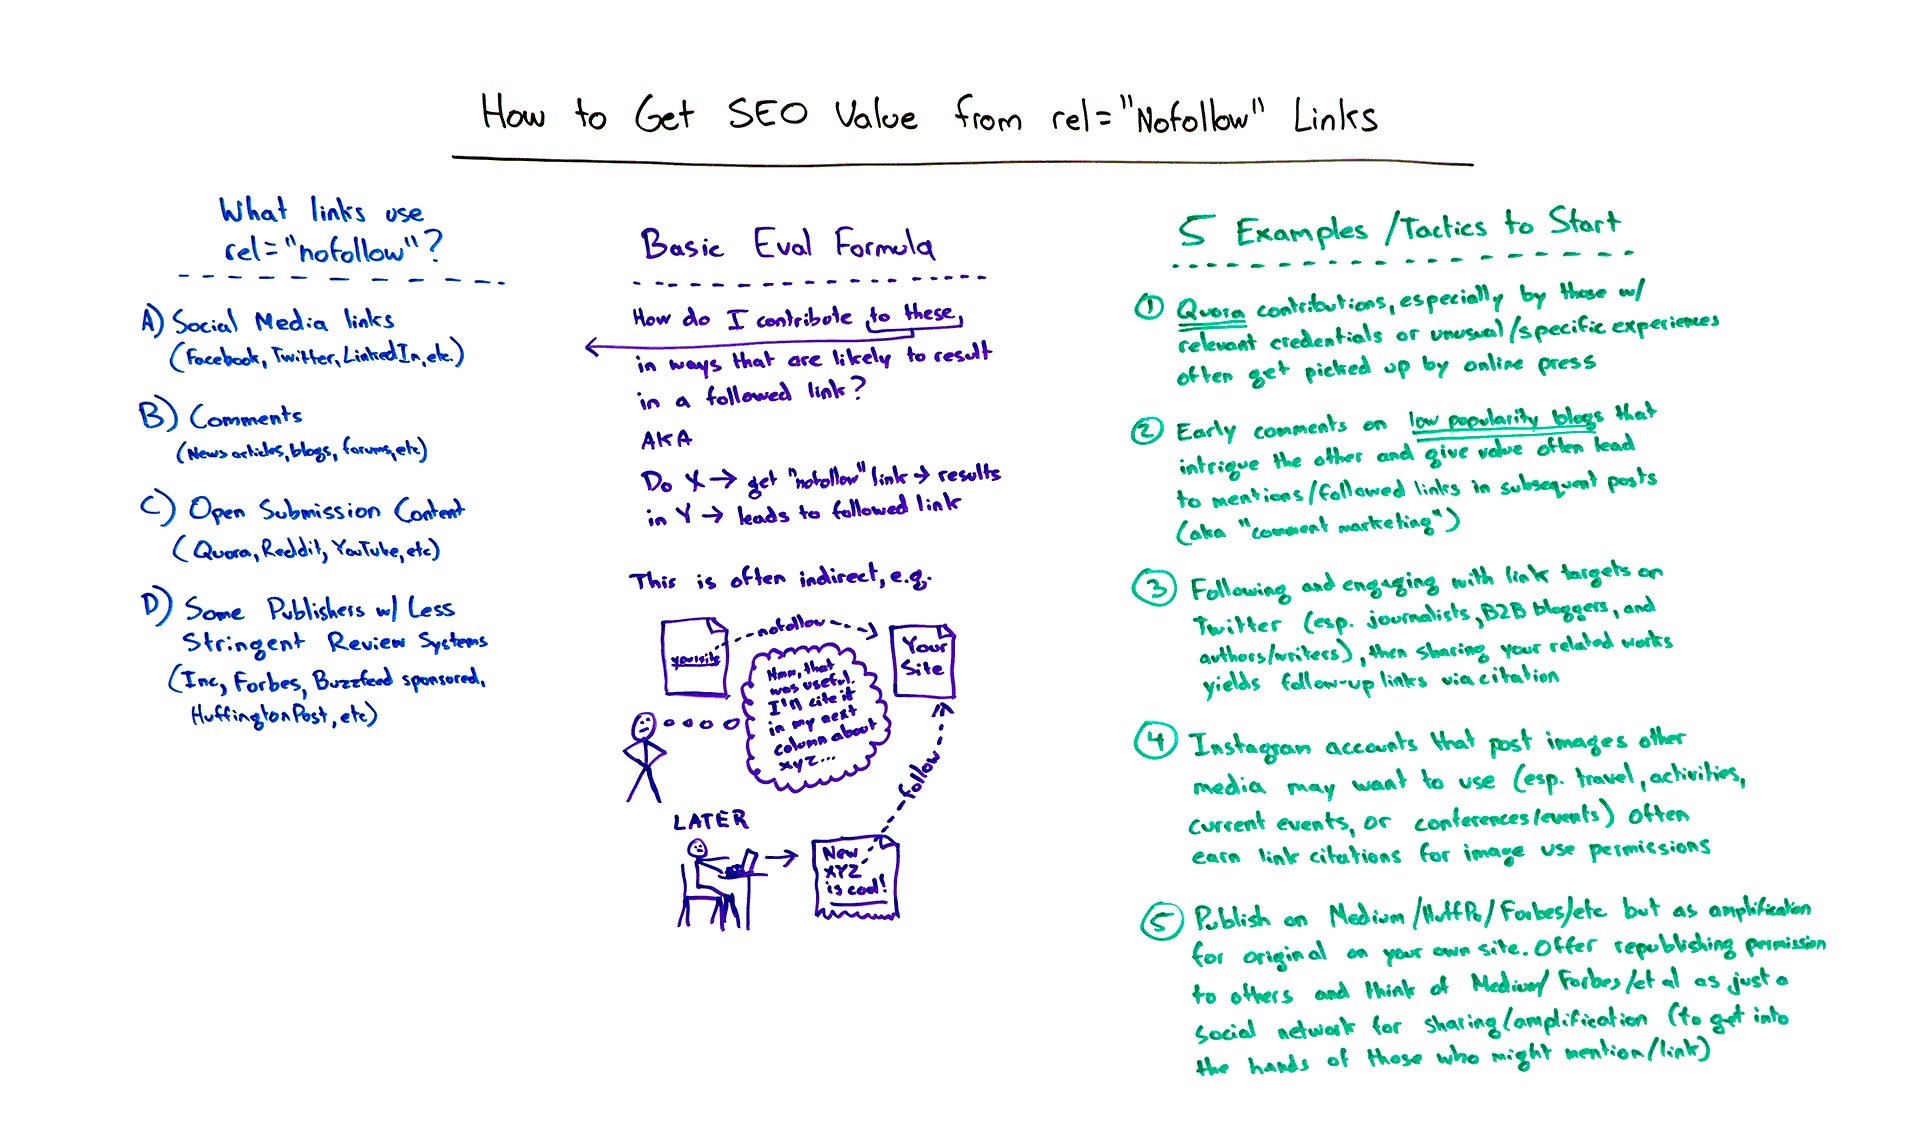 How to Get SEO Value from rel="Nofollow" Links
What links use
rel="nofollow"?
A) Social Media links
(Facebook, Twitter, LinkedIn, etc.)
B) Comments
(News articles, blogs, forums, etc)
C) Open Submission Content
(Quora, Reddit, YouTube, etc)
D) Some Publishers w/ Less
Stringent Review Systems
(Inc, Forbes, Buzzfeed sponsored,
HuffingtonPost, etc)
Basic Eval Formula
How do I contribute to these,
in ways that are likely to result
in a followed link?
AKA
Do X → get "nofollow" link → results
in Y → leads to followed link
This is often indirect, e.g.
nofollow
yoursite
Your
Site
Hmm, that
was useful.
I'll cite it
in my next
column about
xyz...
follow
LATER
New
XYZ
is cool!
5 Examples/Tactics to Start
1 Quora contributions, especially by those w/
relevant credentials or unusual/specific experiences
often get picked up by online press
2 Early comments on low popularity blogs that
intrigue the other and give value often lead
to mentions/followed links in subsequent posts
(aka "comment marketing")
3 Following and engaging with link targets on
Twitter (esp. journalists, B2B bloggers, and
authors/writers), then sharing your related works
yields follow-up links via citation
4 Instagram accounts that post images other
media may want to use (esp. travel, activities,
current events, or conferences/events) often
earn link citations for image use permissions
5 Publish on Medium/HuffPo/Forbes/etc but as amplification
for original on your own site. Offer republishing permission
to others and think of Medium/Forbes/et al as just a
social network for sharing/amplification (to get into
the hands of those who might mention/link)